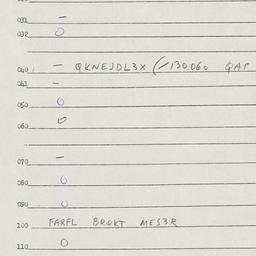 031 –
032 O
040 – QKNEJDL3X (/130060 QAP
043 –
050 O
060 O
070 –
080 O
090 O
100 FARFL BROKT MES3R
110 O